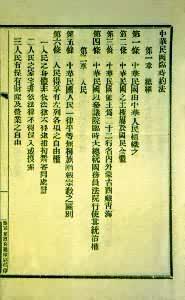 中華民國臨時約法
第一章　總綱
第一條　中華民國由中華人民組織之
第二條　中華民國之主權屬於國民全體
第三條　中華民國領土爲二十二行省內外蒙古西藏青海
第四條　中華民國以參議院臨時大總統國務員法院行使其統治權
第二章　人民
第五條　中華民國人民一律平等無種族階級宗教之區別
第六條　人民得享有左列各項之自由權
一人民之身體非依法律不得逮捕拘禁審問處罰
二人民之家宅非依法律不得侵入或搜索
三人民有保有財產及營業之自由